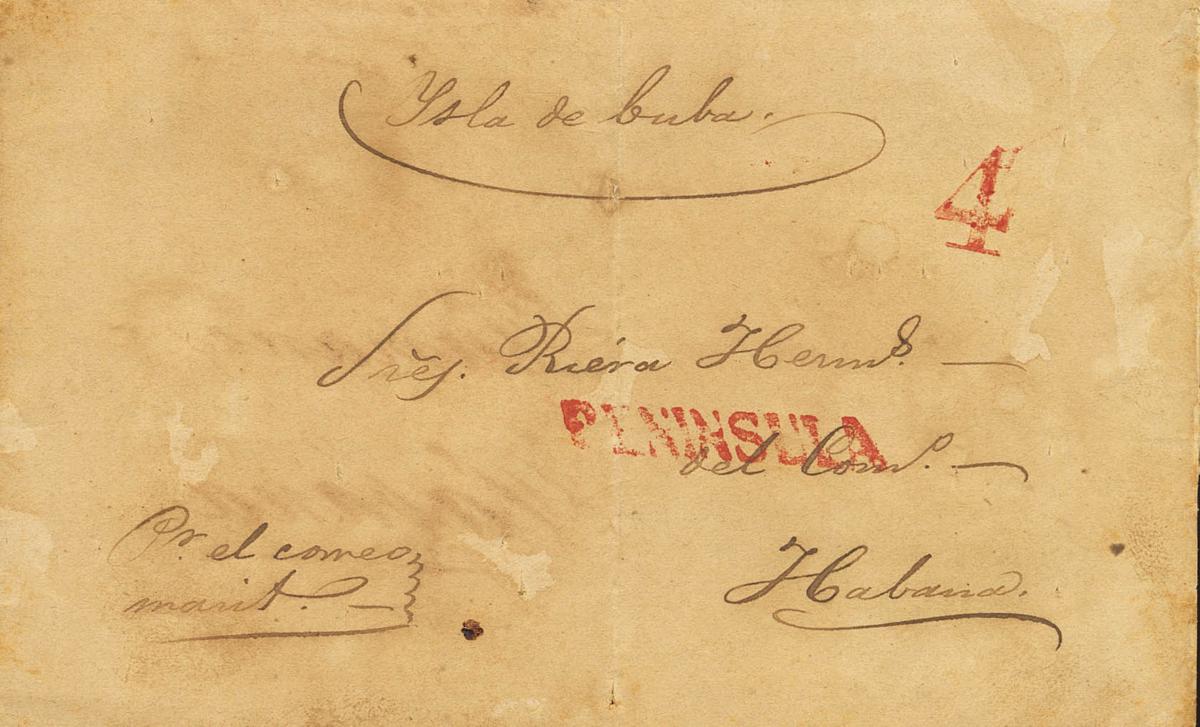 Ysla de Cuba.
4
Sres. Riera Herms.
PENINSULA
del Como.
Pr. el correo
marit.
Habana.